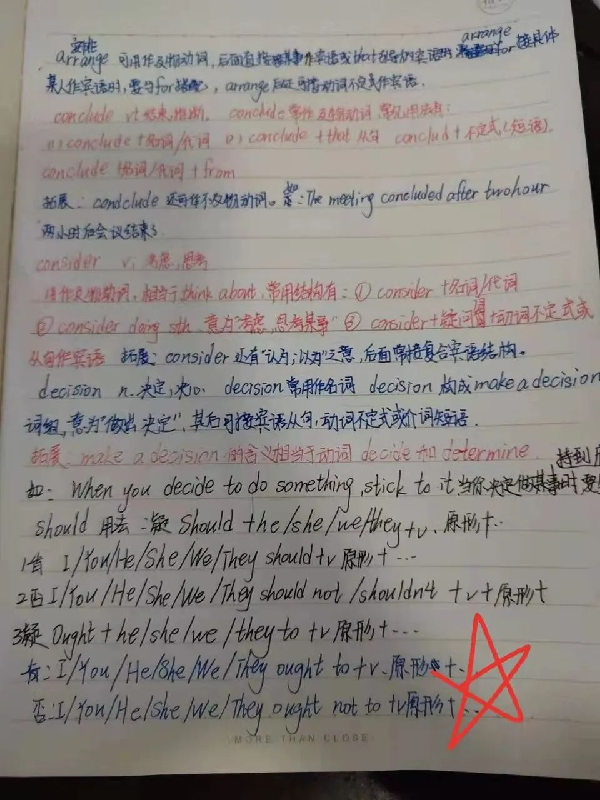 安排 arrange
arrange 可用作及物动词,后面直接某事作宾语或that引导的宾语时 for 接具体
某人作宾语时,要与for搭配,arrange后还可接动词不定式作宾语.
conclude vt 结束,推断. conclude 常作及物动词,常见用法有:
conclude +名词/代词 conclude + that 从句 conclud + 不定式(短语).
conclude 名词/代词 + from
拓展: condclude 还可作不及物动词。如: The meeting concluded after two hour
两小时后会议结束。
consider v, 考虑,思考
作及物动词,相当于 think about, 常用结构有: ① consider +名词/代词
② consider doing sth 意为"考虑,思考某事" ③ consider + 疑问词+动词不定式或
从句作宾语 拓展: consider 还有"认为;以为"之意,后面常接复合宾语结构。
decision n. 决定,决心. decision 常用作名词 decision 构成 make a decision
词组,意为"做出决定", 其后可接宾语从句,动词不定式或介词短语.
拓展: make a decision 的含义相当于动词 decide 和 determine.
如: When you decide to do something, stick to it 当你决定做某事时 要 持到
should 用法: 疑 Should + he/she/we/they + v. 原形 + …
1肯 I/You/He/She/We/They should + v 原形 + …
2否 I/You/He/She/We/They should not /shouldn't + v + 原形 +
3疑 Ought + he/she/we/they to + v 原形, + …
肯: I/You/He/She/We/They ought to + v. 原形 + .
否: I/You/He/She/We/They ought not to + v 原形 + …
MORE THAN CLOSE